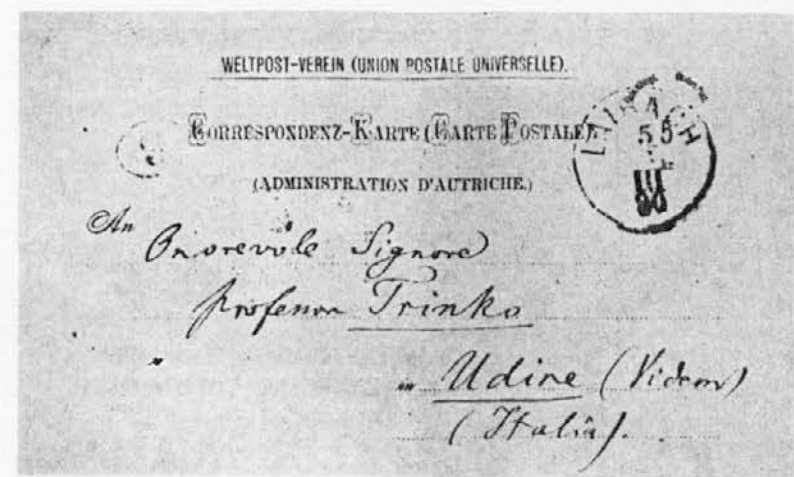 WELTPOST-VEREIN (UNION POSTALE UNIVERSELLE).
CORRESPONDENZ-KARTE (CARTE POSTALE)
(ADMINISTRATION D'AUTRICHE.)
LAIBACH
An Onorevole Signore
professor Trinko
in Udine (Videm)
(Italia).